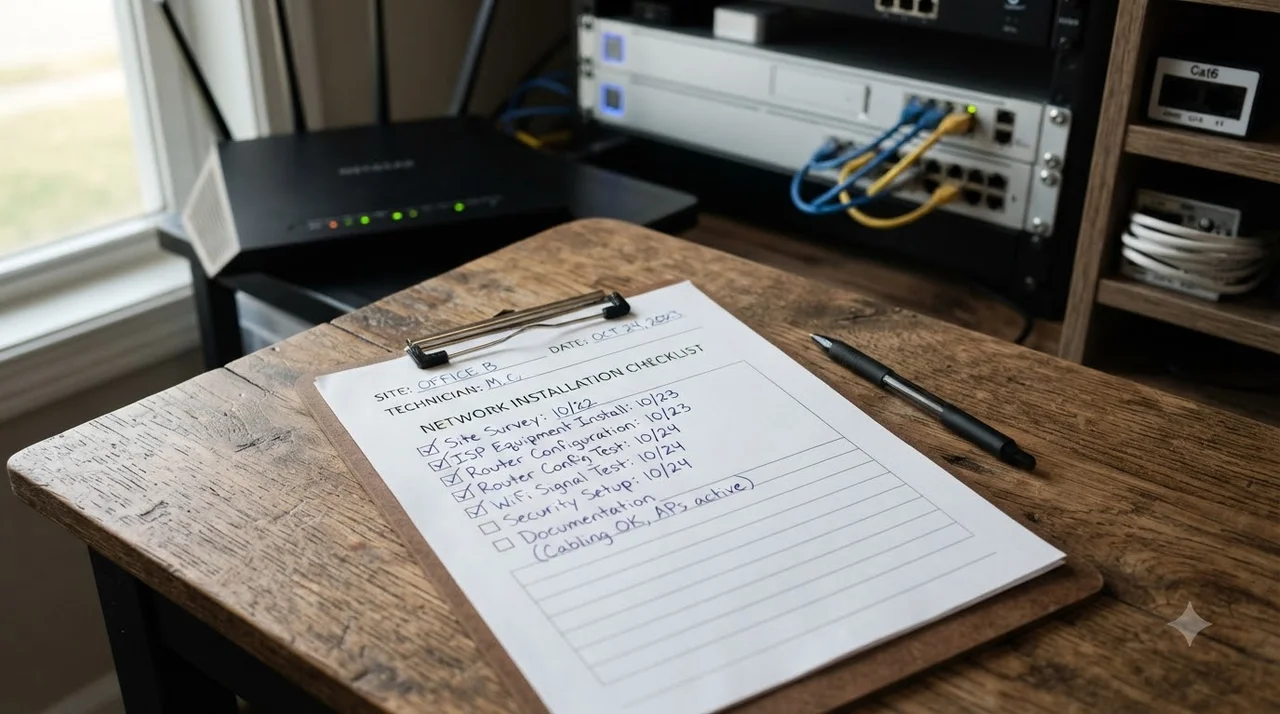 NETGEAR
Cat6
SITE: OFFICE B DATE: OCT 24, 2023
TECHNICIAN: M.C.
NETWORK INSTALLATION CHECKLIST
Site Survey: 10/22
ISP Equipment Install: 10/23
Router Configuration: 10/23
Router Config Test: 10/24
WiFi Signal Test: 10/24
Security Setup: 10/24
Documentation
(Cabling OK, APs active)